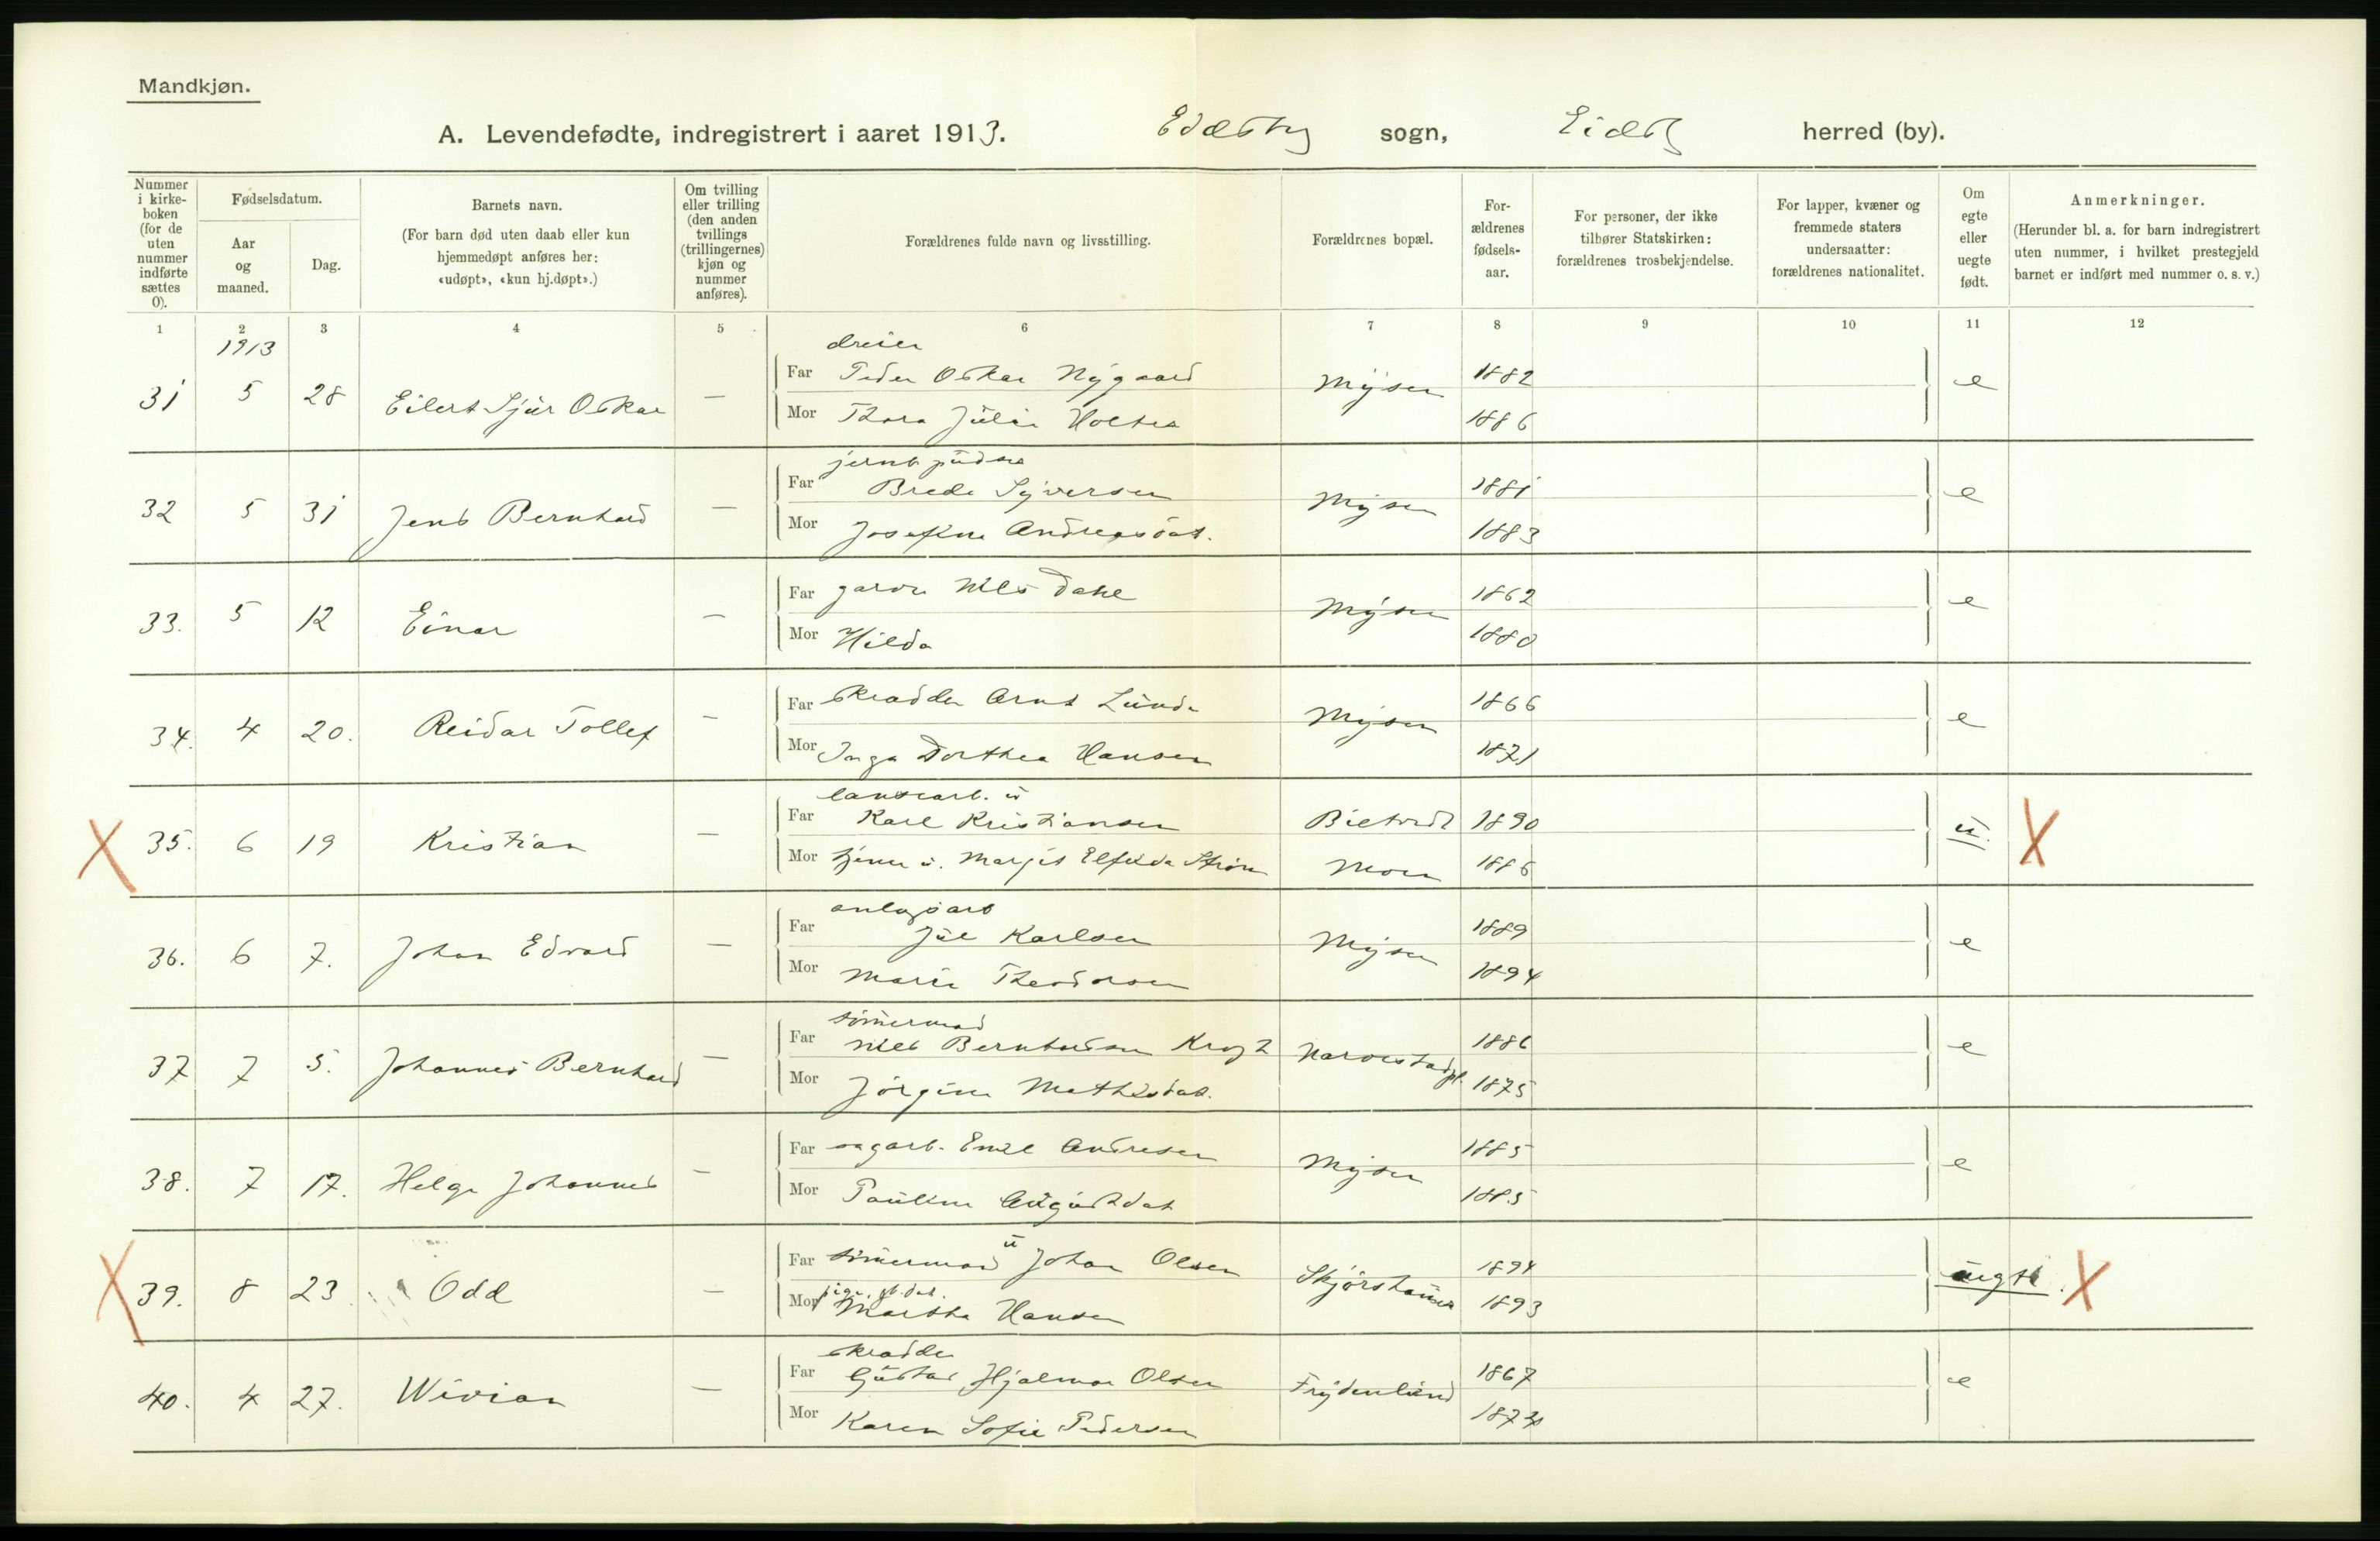 Mandkjøn.
A. Levendefødte, indregistrert i aaret 1913. Eidsbg sogn, Eidsbg herred (by).
Nummer i kirkeboken (for de uten nummer indførte sættes 0).
Fødselsdatum.
Aar og maaned.
Dag.
Barnets navn.
(For barn død uten daab eller kun hjemmedøpt anføres her: «udøpt», «kun hj.døpt».)
Om tvilling eller trilling (den anden tvillings (trillingernes) kjøn og nummer anføres).
Forældrenes fulde navn og livsstilling.
Forældrenes bopæl.
Forældrenes fødselsaar.
For personer, der ikke tilhører Statskirken: forældrenes trosbekjendelse.
For lapper, kvæner og fremmede staters undersaatter: forældrenes nationalitet.
Om egte eller uegte født.
Anmerkninger.
(Herunder bl. a. for barn indregistrert uten nummer, i hvilket prestegjeld barnet er indført med nummer o. s. v.)
1 2 3 4 5 6 7 8 9 10 11 12
1913
dreier
31 5 28 Eilert Sjur Oskar — Far Peder Oskar Nygaard Mysen 1882 e
Mor Thora Julie Holter 1886
32 5 31 Jens Bernhard — Far Brede Syversen Mysen 1881 e
Mor Josefine Andreasdat. 1883
33. 5 12 Einar — Far garver Nils Dahl Mysen 1862 e
Mor Hilda 1880
34. 4 20. Reidar Tollef — Far skrædder Arnt Lunde Mysen 1866 e
Mor Inga Dorthea Hansen 1871
X 35. 6 19 Kristian — Far Karl Kristiansen 1890 u. X
Mor Margit Elfrida Strøm Moen 1886
anlægsarb
36. 6 7. Johan Edvard — Far Jul Karlsen Mysen 1889 e
Mor Marie Theodorsen 1894
tømermad
37 7 5. Johannes Bernhard — Far Nils Bernhardsen 1886 e
Mor Jørgine Mathisdat. 1875
38. 7 17. Helge Johannes — Far sagarb. Emil Andresen Mysen 1885 e
Mor Pauline Augustdat 1885
X 39. 8 23. Odd — Far tømermand u Johan Olsen 1894 uegte. X
Mor pige, gb.dat. Martha Hansen 1893
skrædder
40. 4 27. Wivian — Far Gustav Hjalmar Olsen Frydenlund 1867 e
Mor Karen Sofie Pedersen 1874